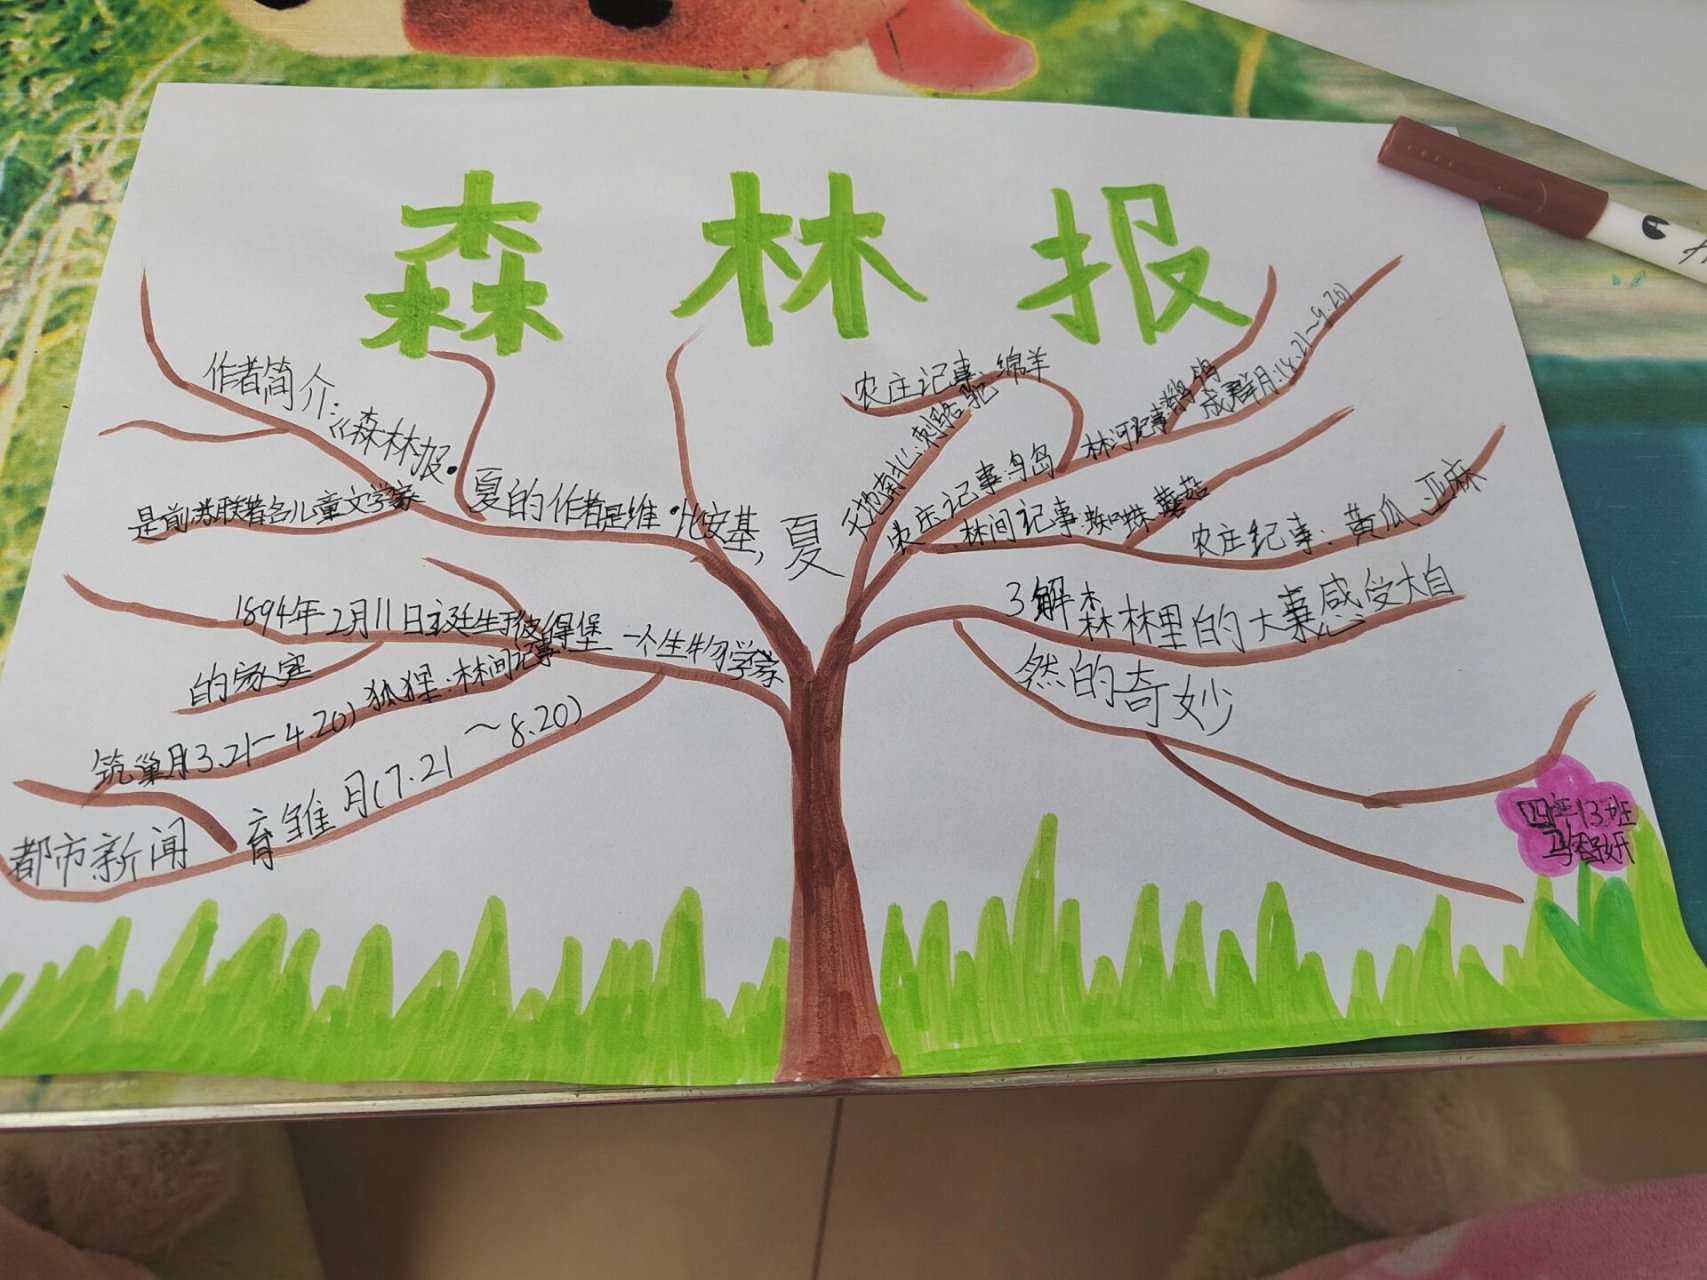 森林报
作者简介:《森林报·
夏的作者是维·比安基,
是前苏联著名儿童文学家
1894年2月11日诞生于彼得堡 一个生物学家
的家里
筑巢月3.21-4.20) 狐狸:林间记事
育雏月(7.21~8.20)
都市新闻
夏
天地南北:刺骆驼
农庄记事:绵羊
农庄记事:鸟岛
林河记事:
成群月:(8.21~9.20)
林间记事:蜘蛛 蘑菇
农庄纪事:黄瓜、亚麻
了解森林里的大事感受大自
然的奇妙
四年13班